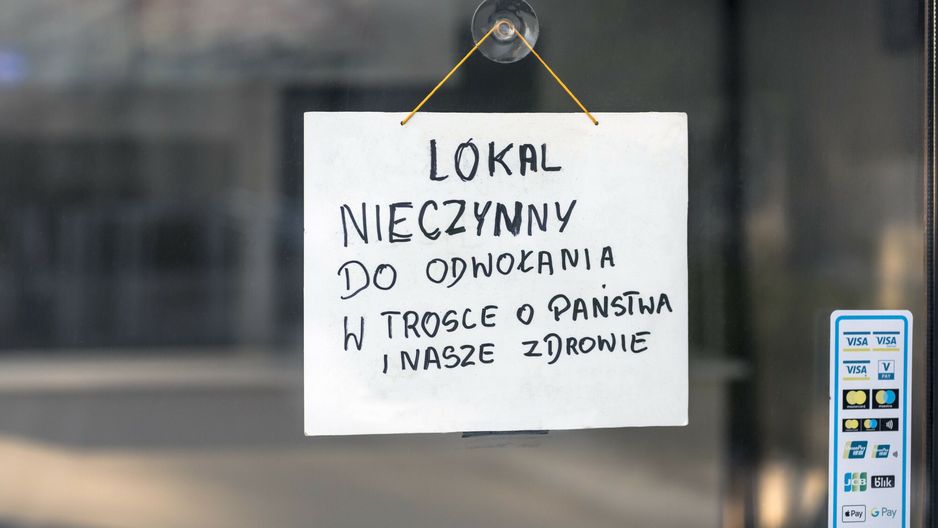 LOKAL
NIECZYNNY
DO ODWOŁANIA
W TROSCE O PAŃSTWA
I NASZE ZDROWIE
VISA VISA
VISA V PAY
mastercard maestro
UnionPay UnionPay
JCB blik
Pay G Pay